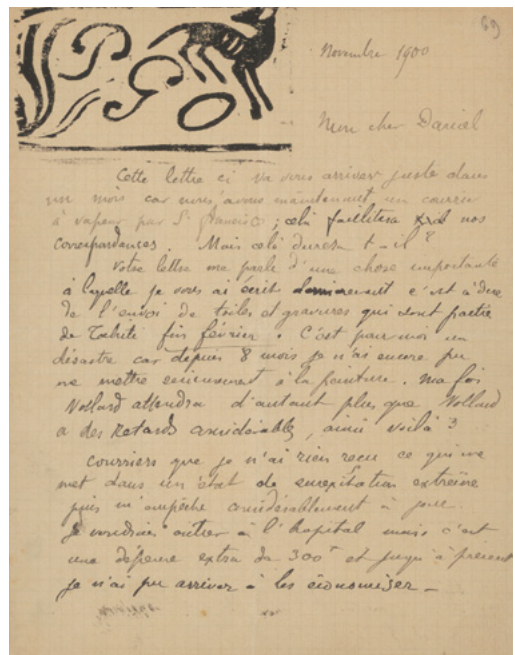 69
Novembre 1900
Mon cher Daniel
Cette lettre ci va vous arriver juste dans
un mois car nous avons maintenant un courrier
à vapeur par St Francisco ; celà facilitera nos
correspondances. Mais celà durera t-il ?
Votre lettre me parle d'une chose importante
à laquelle je vous ai écrit dernièrement c'est à dire
de l'envoi de toiles et gravures qui sont parties
de Tahiti fin février. C'est pour moi un
désastre car depuis 8 mois je n'ai encore pu
me mettre sérieusement à la peinture. Ma foi
Vollard attendra d'autant plus que Vollard
a des retards considérables, ainsi voilà 3
courriers que je n'ai rien reçu ce qui me
met dans un état de surexcitation extrême
puis m'empêche considérablement à
Je voudrais entrer à l'hopital mais c'est
une dépense extra de 300f et jusqu'à présent
je n'ai pu arriver à les économiser _